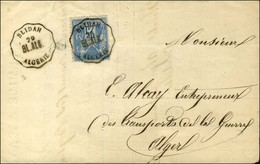 BLIDAH
29
BL.ALG.
ALGERIE
BLIDAH
ALGERIE
Monsieur
E. Alcay Entrepreneur
des transports de la Guerre
Alger